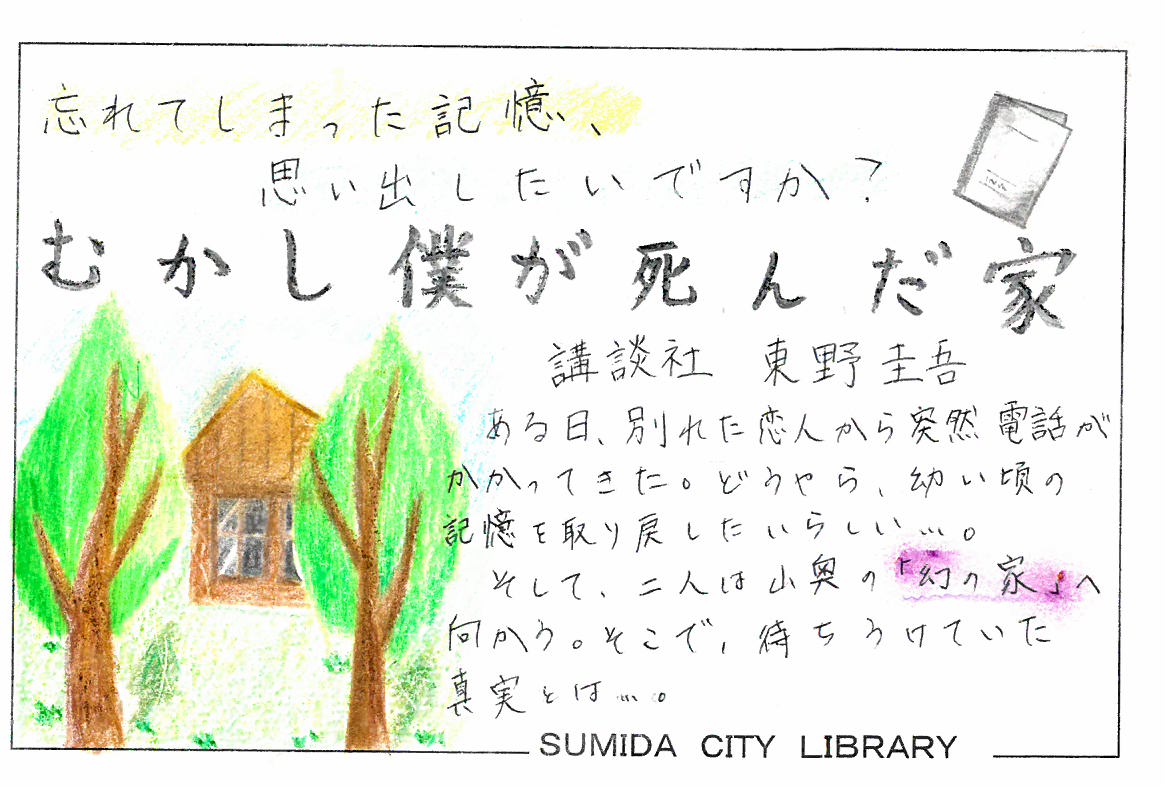 忘れてしまった記憶、
思い出したいですか?
むかし僕が死んだ家
講談社 東野圭吾
ある日、別れた恋人から突然電話が
かかってきた。どうやら、幼い頃の
記憶を取り戻したいらしい…。
そして、二人は山奥の「幻の家」へ
向かう。そこで、待ちうけていた
真実とは…。
SUMIDA CITY LIBRARY